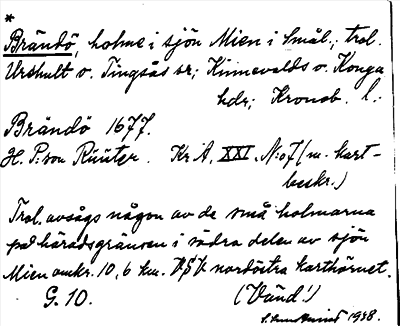 *
Brändö, holme i sjön Mien i Smål.; trol.
Urshult o. Tingsås sr; Kinnevalds o. Konga
hdr; Kronob. l.:
Brändö 1677.
H. P:son Rüüter. Kr.A. XXI. N:o 7 (m. kart-
beskr.)
Trol. avsågs någon av de små holmarna
på häradsgränsen i södra delen av sjön
Mien omkr. 10,6 km. VSV nordöstra karthörnet.
G. 10. (Vänd!)
1938.